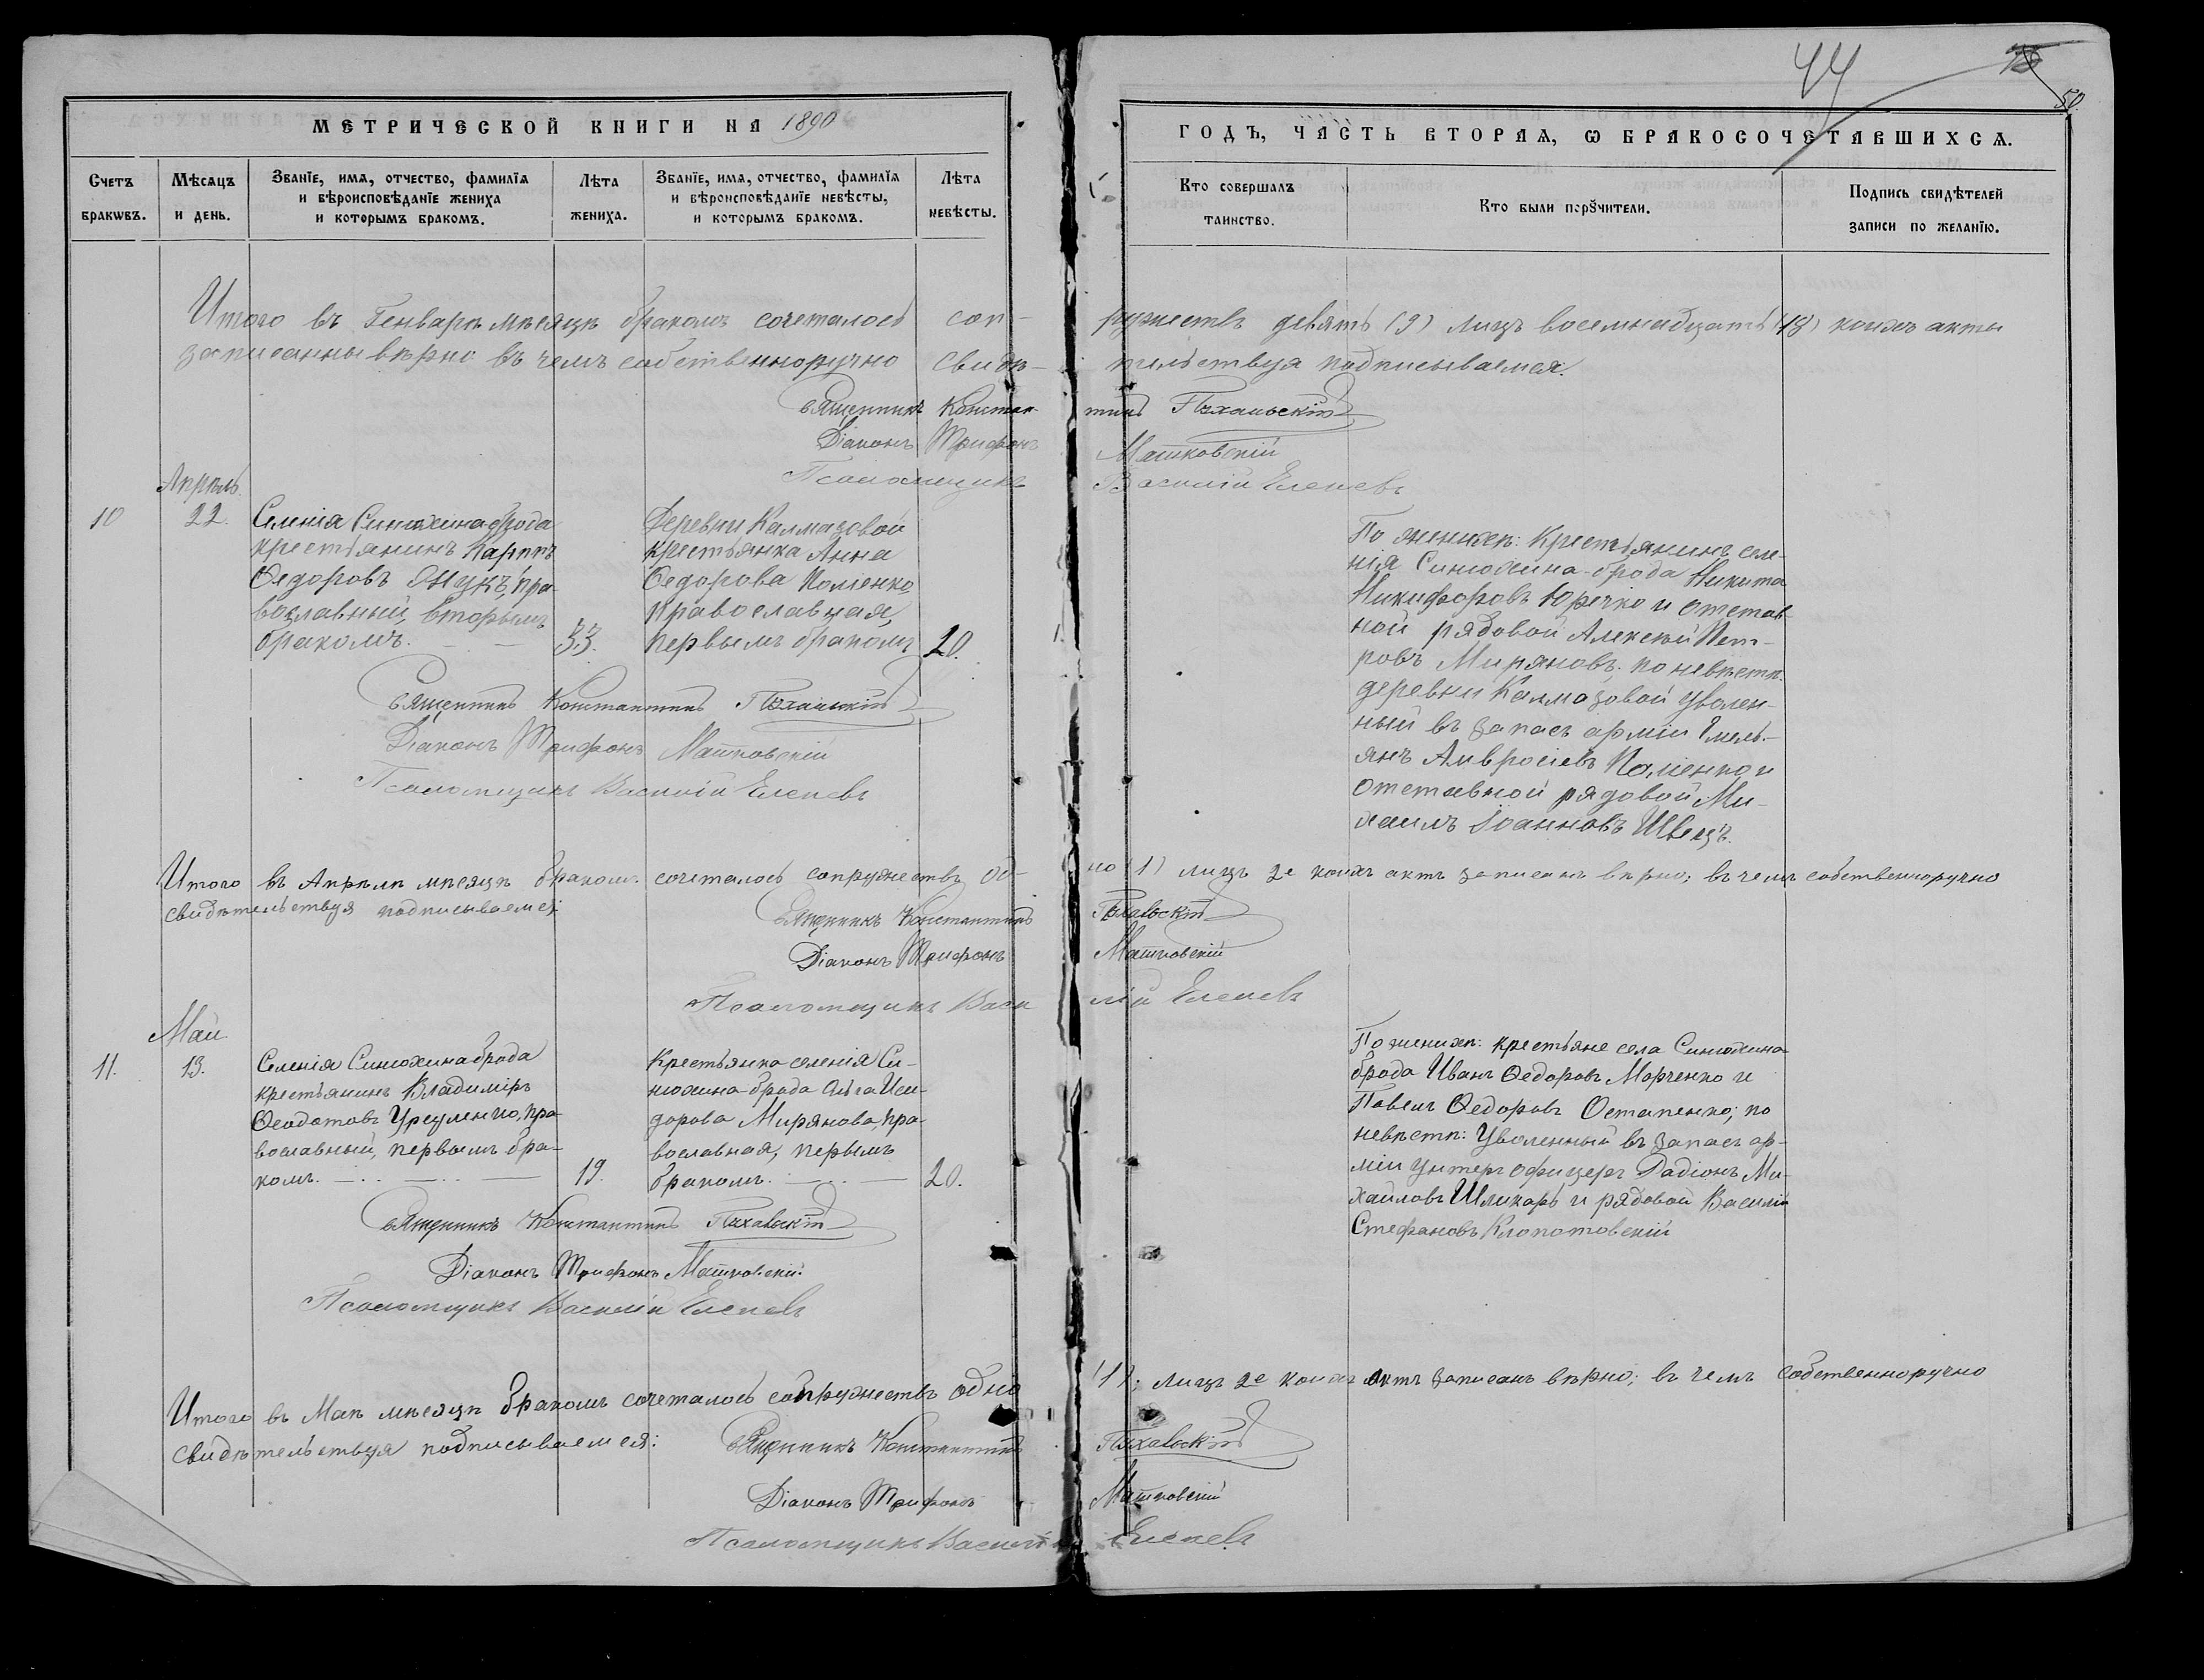 44
50.
МЕТРИЧЕСКОЙ КНИГИ НА 1890
ГОДЪ, ЧАСТЬ ВТОРАѦ, Ѡ БРАКОСОЧЕТАВШИХСѦ.
Счетъ бракѡвъ.
Мѣсѧцъ и день.
Званїе, имѧ, отчество, фамилїѧ
и вѣроисповѣданїе жениха
и которымъ бракомъ.
Лѣта жениха.
Званїе, имѧ, отчество, фамилїѧ
и вѣроисповѣданїе невѣсты,
и которымъ бракомъ.
Лѣта невѣсты.
Кто совершалъ
таинство.
Кто были порꙋчители.
Подпись свидѣтелей
записи по желанїю.
Итого въ Генварѣ мѣсяцѣ бракомъ сочеталось суп-
ружествъ девять (9) лицъ восемнадцать (18) коихъ акты
записанны вѣрно въ чемъ собственноручно свидѣ-
тельствуя подписываемся.
Священникъ Констан-
тинъ
Діаконъ Трифонъ
Машковскій
Псаломщикъ
Василій Елепевъ
Апрѣль
10
22.
Селенія Синюхина брода
крестьянинъ Карпъ
Ѳедоровъ Онукъ, пра-
вославный, вторымъ
бракомъ.
33.
Деревни Калмазовой
крестьянка Анна
Ѳедорова Поліенко,
православная,
первымъ бракомъ
20.
По женихѣ: Крестьянинъ селе-
нія Синюхина-брода Никита
Никифоровъ Юречко и отстав-
ной рядовой Алексѣй Пет-
ровъ Миряновъ; по невѣстѣ:
деревни Калмазовой уволен-
ный въ запасъ арміи Емель-
янъ Амвросіевъ Поліенко и
отставной рядовой Ми-
хаилъ Іоанновъ Швецъ.
Священникъ Константинъ
Діаконъ Трифонъ Машковскій
Псаломщикъ Василій Елепевъ
Итого въ Апрѣлѣ мѣсяцѣ бракомъ сочеталось супружествъ од-
но (1) лицъ 2е коихъ актъ записанъ вѣрно; въ чемъ собственноручно
свидѣтельствуя подписываемся:
Священникъ Константинъ
Діаконъ Трифонъ
Машковскій
Псаломщикъ Васи
лій Елепевъ
Май
11.
13.
Селенія Синюхина брода
крестьянинъ Владиміръ
Ѳеодотовъ Урсуленко, пра-
вославный, первымъ бра-
комъ.
19.
Крестьянка селенія Си-
нюхина-брода Ольга Иси-
дорова Мирянова, пра-
вославная, первымъ
бракомъ.
20.
По женихѣ: крестьяне села Синюхина
брода Иванъ Ѳедоровъ Марченко и
Павелъ Ѳедоровъ Остапенко; по
невѣстѣ: Уволенный въ запасъ ар-
міи унтеръ офицеръ Радіонъ Ми-
хайловъ Шликарь и рядовой Василій
Стефановъ Клопотовскій
Священникъ Константинъ
Діаконъ Трифонъ Машковскій
Псаломщикъ Василій Елепевъ
Итого въ Маѣ мѣсяцѣ бракомъ сочеталось супружествъ одно
(1); лицъ 2е коихъ актъ записанъ вѣрно; въ чемъ собственноручно
свидѣтельствуя подписываемся:
Священникъ Константинъ
Діаконъ Трифонъ
Машковскій
Псаломщикъ Василій
Елепевъ